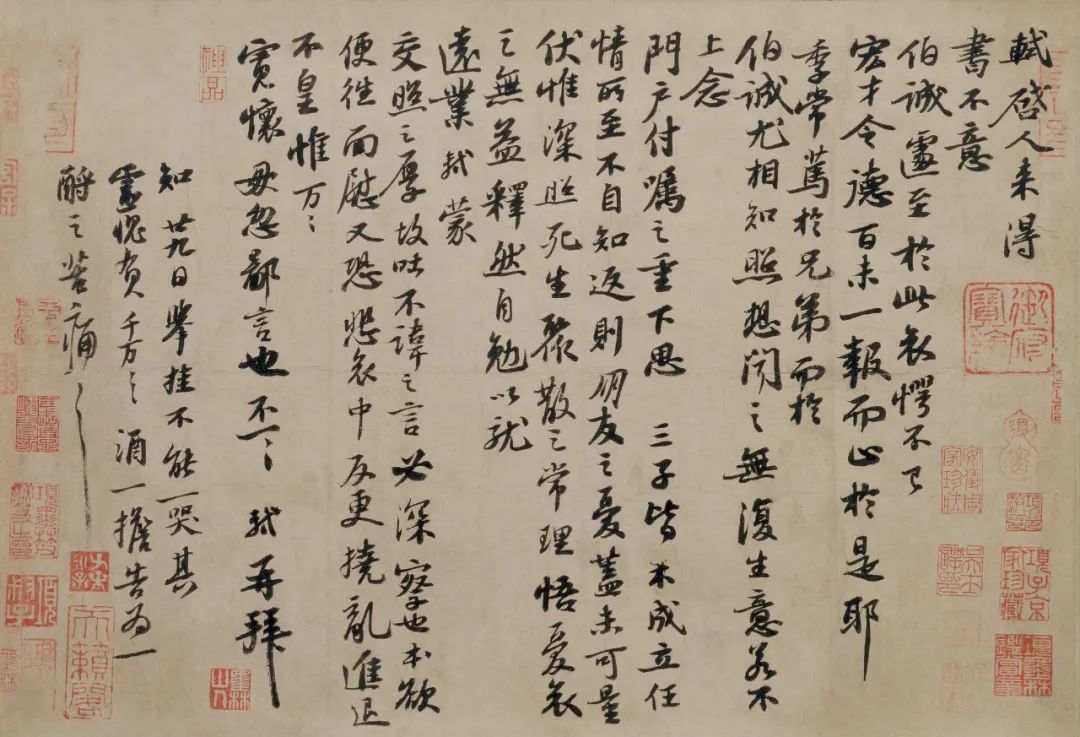 軾啓人来得
書不意
伯誠遽至於此哀愕不已
宏才令德百未一報而止於是耶
季常篤於兄弟而於
伯誠尤相知照想聞之無復生意若不
上念
門户付囑之重下思三子皆未成立任
情所至不自知返則朋友之憂蓋未可量
伏惟深照死生聚散之常理悟憂哀
之無益釋然自勉以就
遠業軾蒙
交照之厚故吐不諱之言必深察也本欲
便往面慰又恐悲哀中反更撓亂進退
不皇惟万〻
寬懷毋忽鄙言也不一〻軾再拜
知廿九日舉挂不能一哭其
靈愧負千万〻酒一擔告為一
酹之苦痛〻
神品
御府寶繪
安儀周家珍藏
項子京家珍藏
項墨林鑑賞章
天籟閣
墨林山人